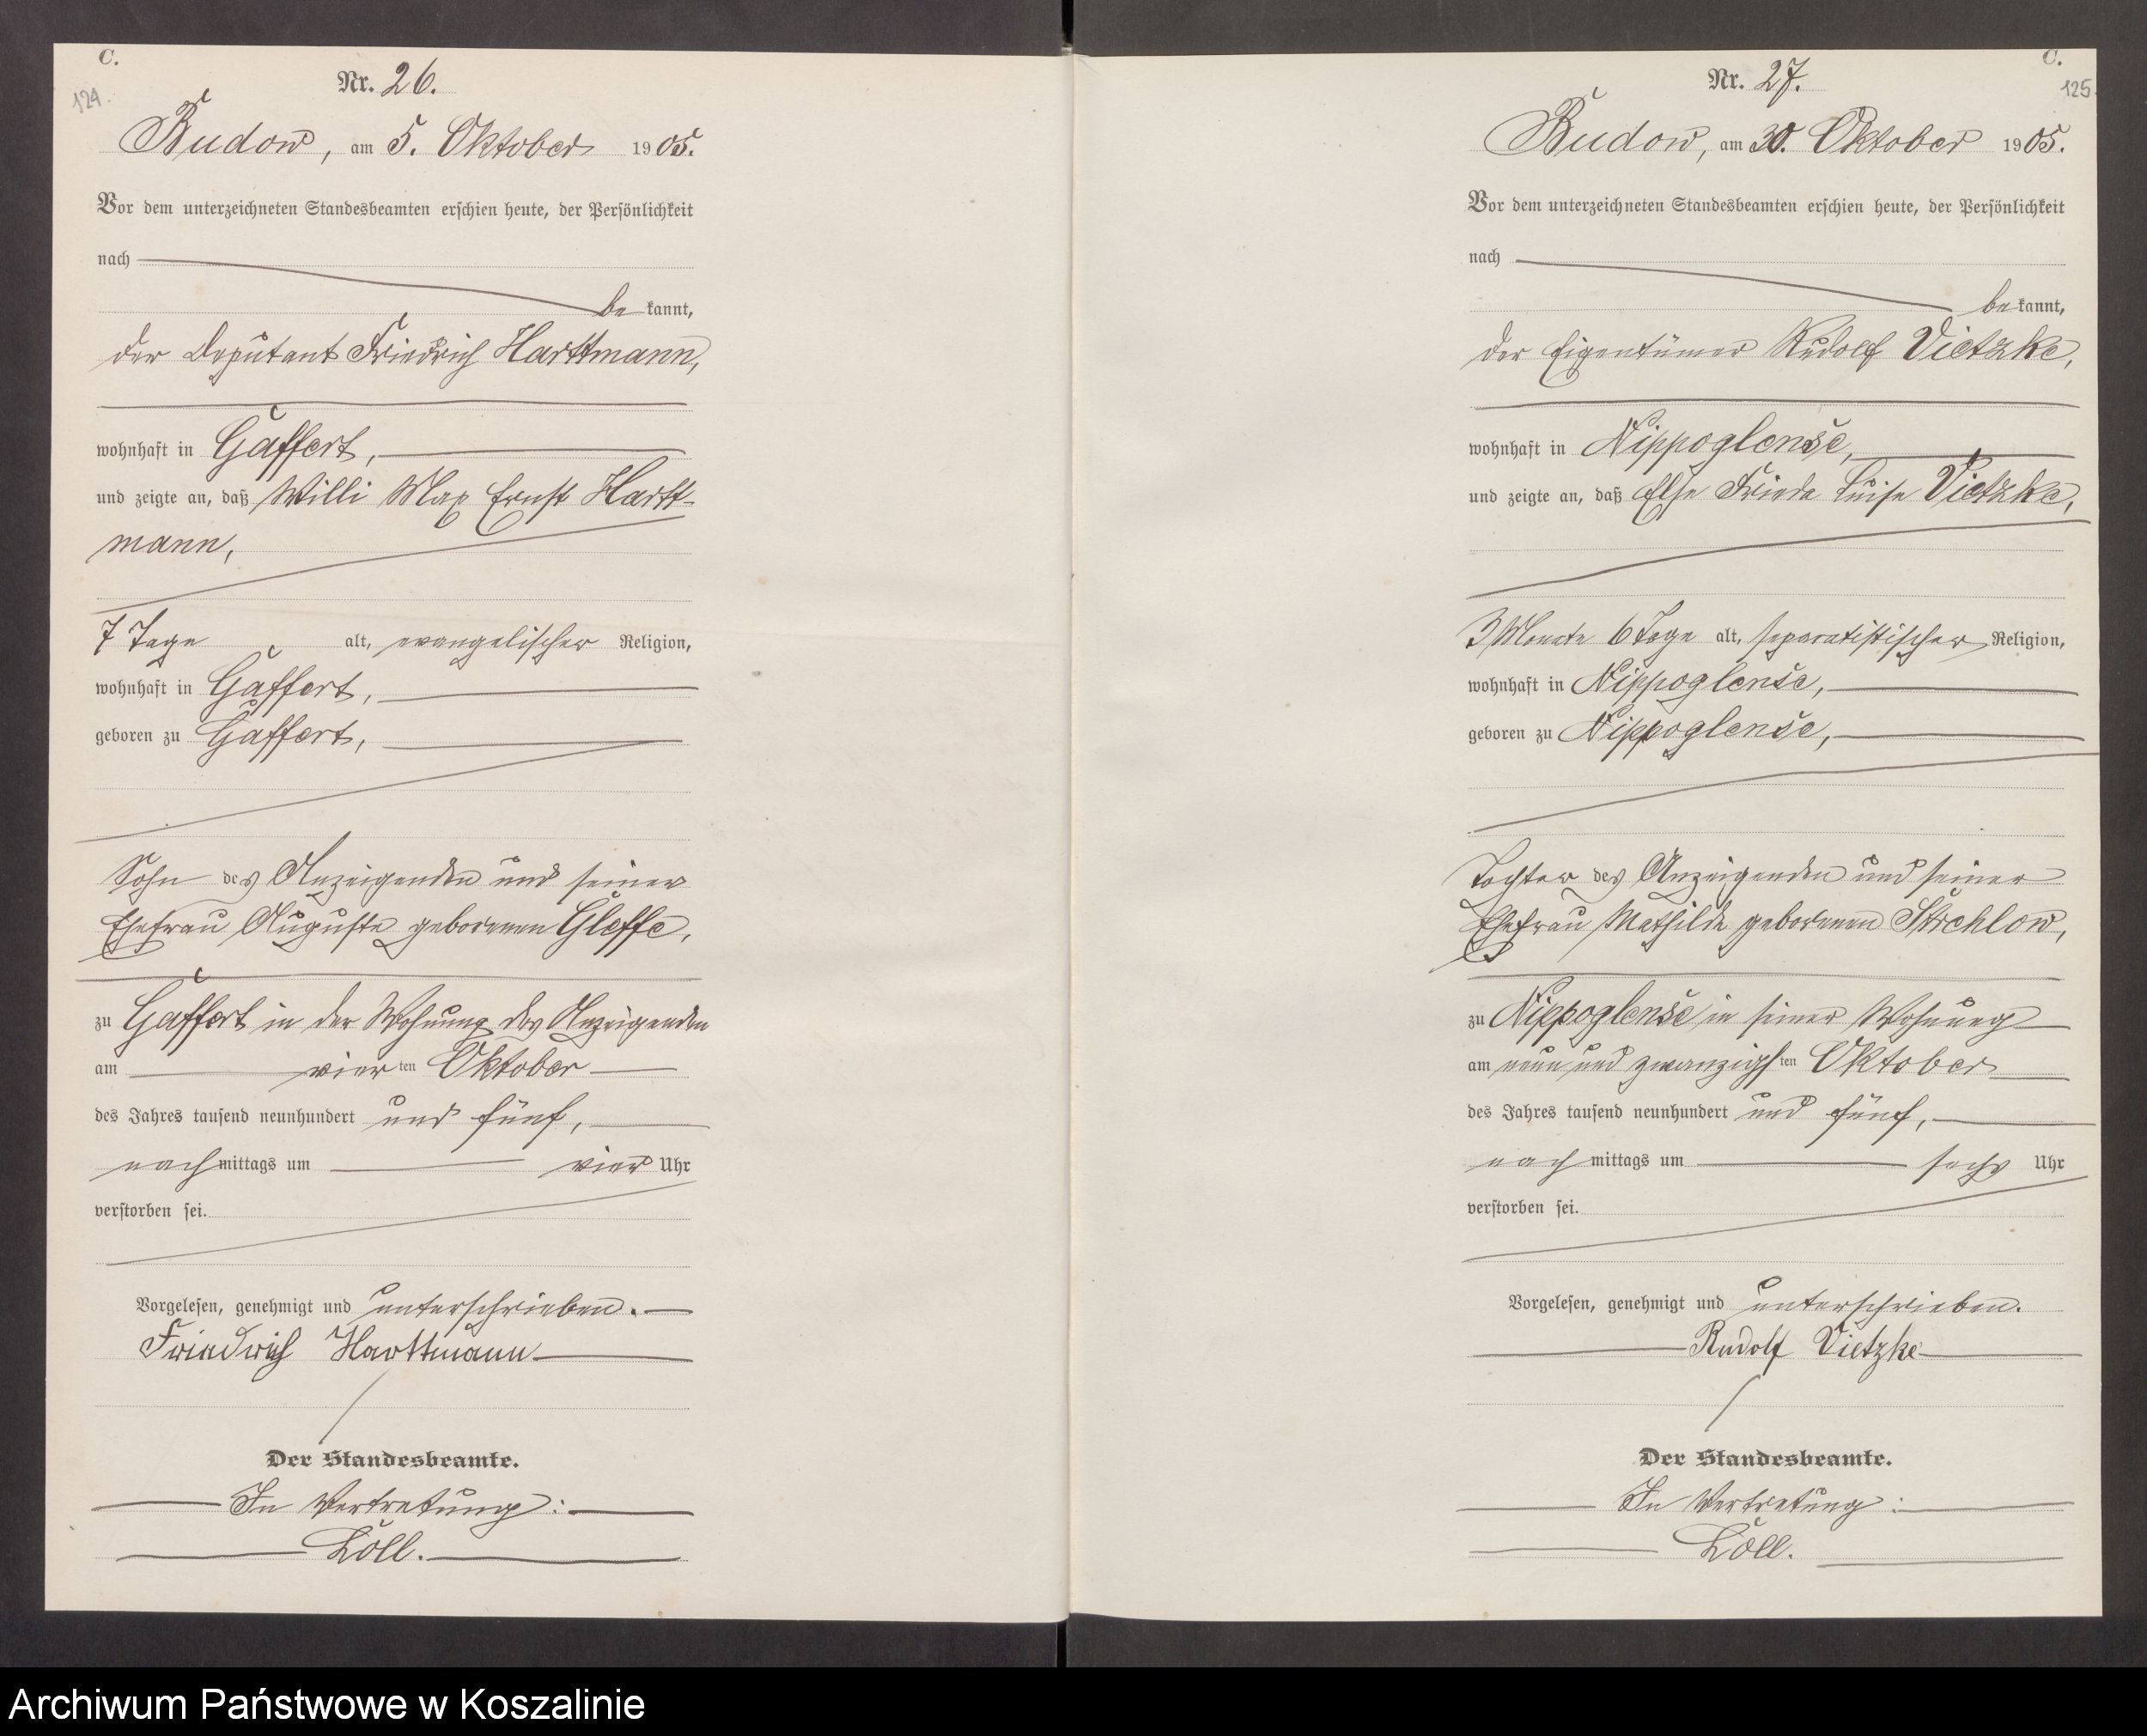 C.
124.
Nr. 26.
Budow, am 5. Oktober 1905.
Vor dem unterzeichneten Standesbeamten erschien heute, der Persönlichkeit
nach
be kannt,
der Deputant Friedrich Harttmann,
wohnhaft in Gaffert,
und zeigte an, daß Willi Max Ernst Hartt-
mann,
7 Tage alt, evangelischer Religion,
wohnhaft in Gaffert,
geboren zu Gaffert,
Sohn des Anzeigenden und seiner
Ehefrau Auguste geborenen Gleffe,
zu Gaffert in der Wohnung des Anzeigenden
am vier ten Oktober
des Jahres tausend neunhundert und fünf,
nach mittags um vier Uhr
verstorben sei.
Vorgelesen, genehmigt und unterschrieben.
Friedrich Harttmann
Der Standesbeamte.
In Vertretung:
Löll.
C.
125.
Nr. 27.
Budow, am 30. Oktober 1905.
Vor dem unterzeichneten Standesbeamten erschien heute, der Persönlichkeit
nach
be kannt,
der Eigentümer Rudolf Vietzke,
wohnhaft in Nippoglense,
und zeigte an, daß Else Frieda Luise Vietzke,
3 Monate 6 Tage alt, separatistischer Religion,
wohnhaft in Nippoglense,
geboren zu Nippoglense,
Tochter des Anzeigenden und seiner
Ehefrau Mathilde geborenen Strehlow,
zu Nippoglense in seiner Wohnung
am neun und zwanzigs ten Oktober
des Jahres tausend neunhundert und fünf,
nach mittags um sechs Uhr
verstorben sei.
Vorgelesen, genehmigt und unterschrieben.
Rudolf Vietzke
Der Standesbeamte.
In Vertretung:
Löll.
Archiwum Państwowe w Koszalinie